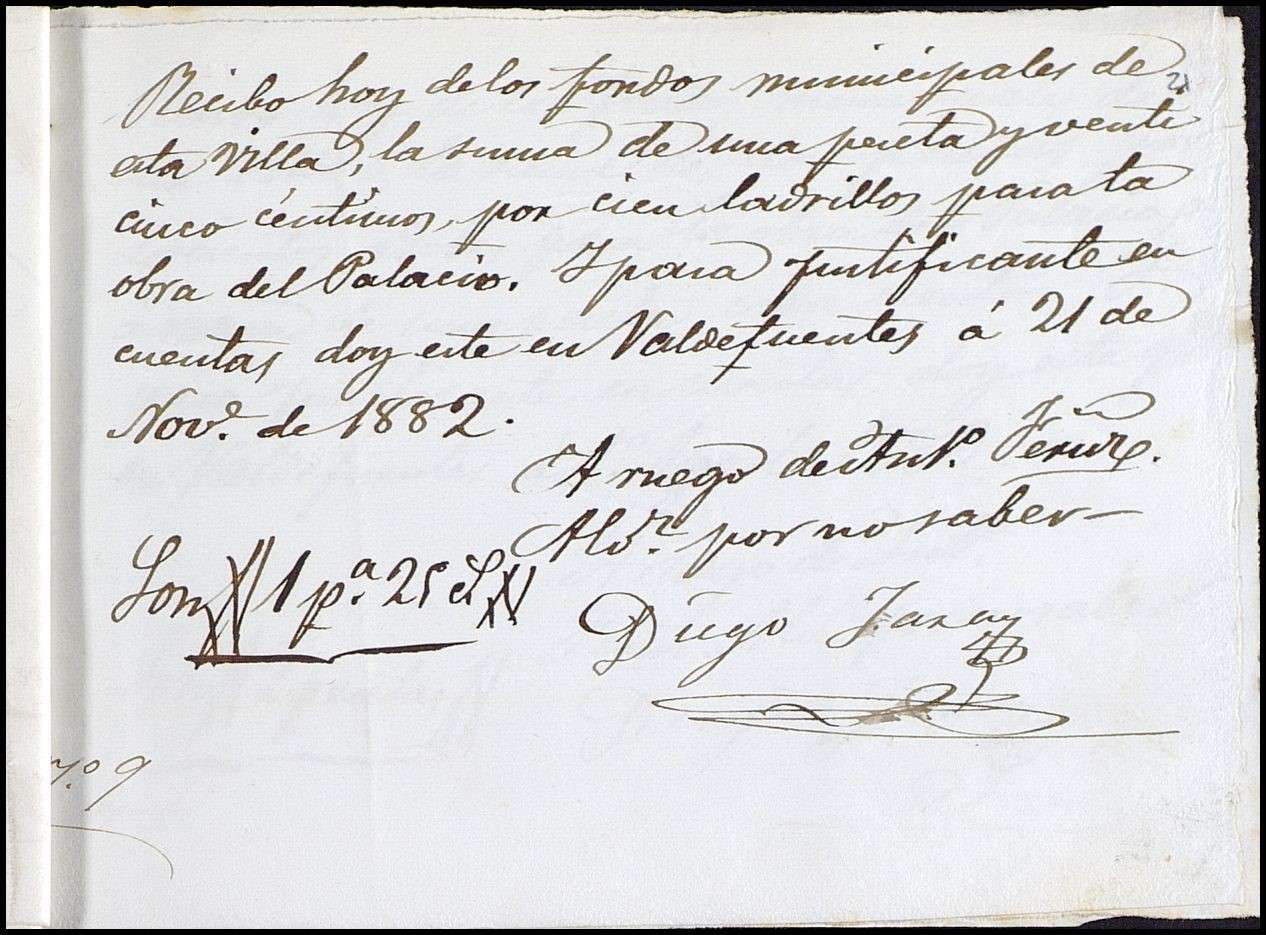 Recibo hoy de los fondos municipales de
esta Villa, la suma de una peseta y venti
cinco céntimos, por cien ladrillos para la
obra del Palacio. Y para justificante en
cuentas doy este en Valdefuentes á 21 de
Nove. de 1882.
A ruego de Anto.
por no saber
Son 1 pa. 25 cs
Diego
9